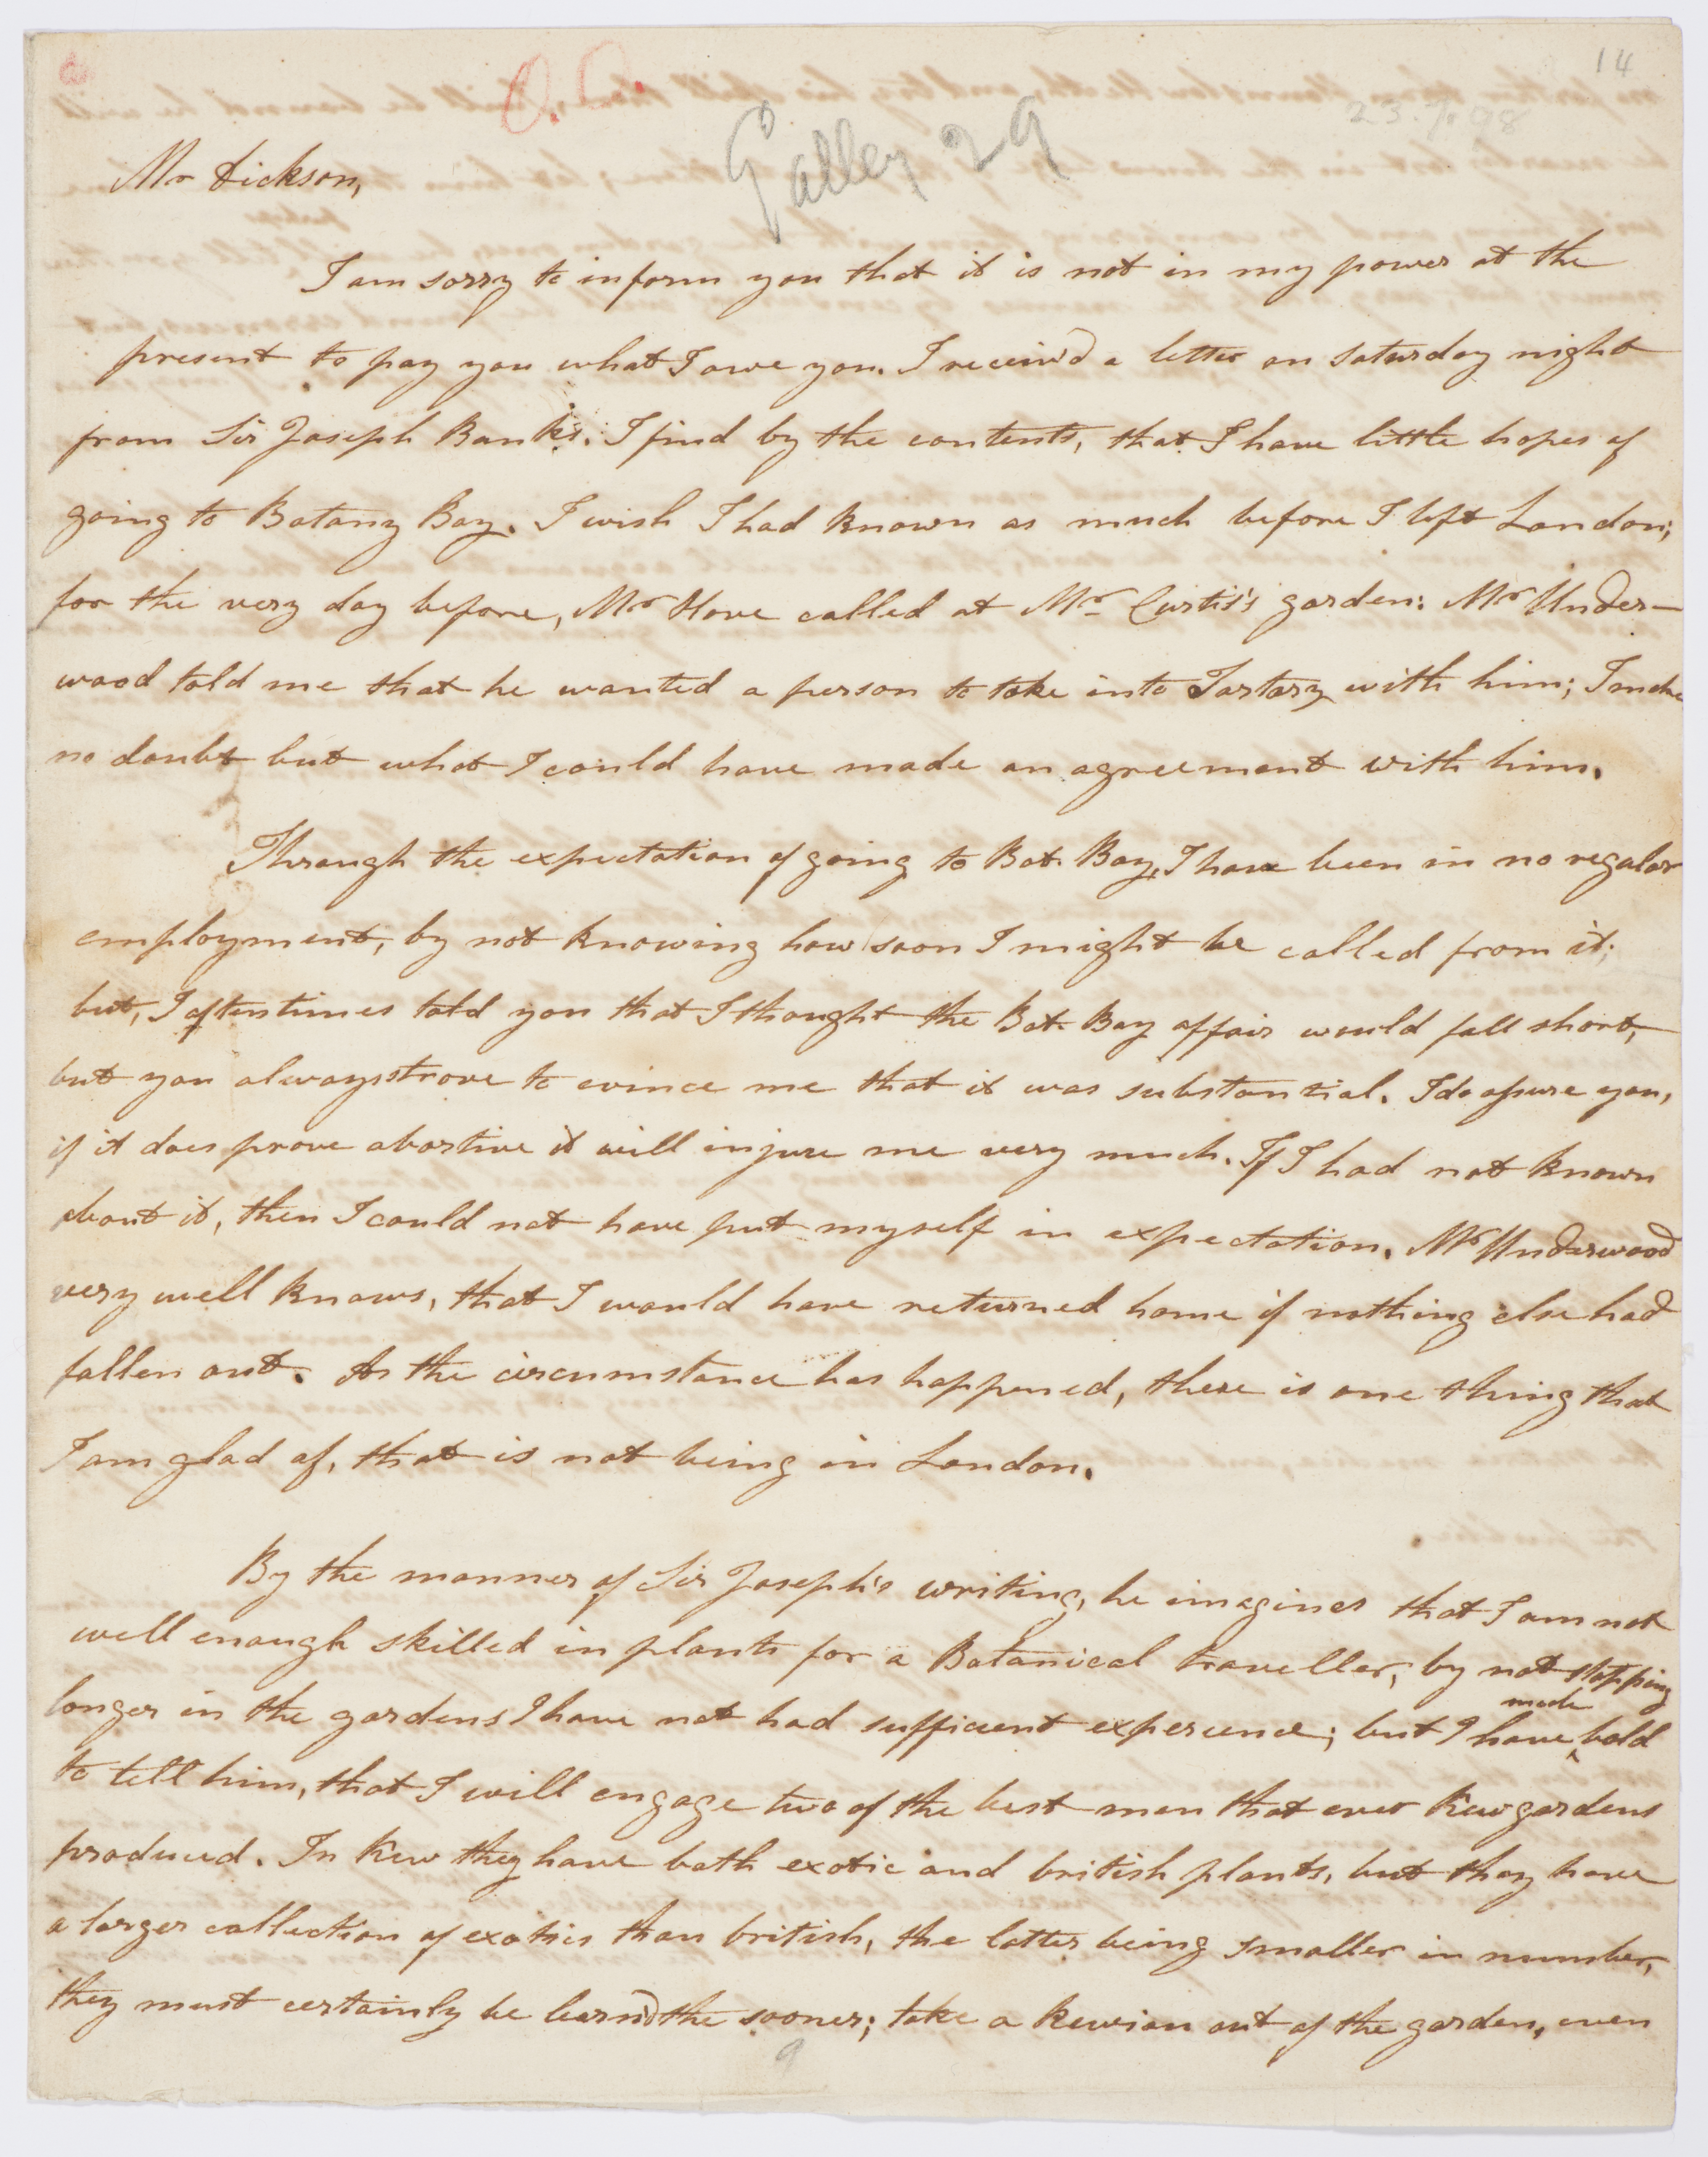 14
C. C.
Galley 29
23.7.98
Mr Dickson,
I am sorry to inform you that it is not in my power at the
present to pay you what I owe you. I receiv'd a letter on Saturday night
from Sir Joseph Banks. I find by the contents, that I have little hopes of
going to Botany Bay. I wish I had known as much before I left London;
for the very day before, Mr Hove called at Mr Curtis's garden: Mr Under-
wood told me that he wanted a person to take into Tartary with him; I make
no doubt but what I could have made an agreement with him.
Through the expectation of going to Bot. Bay, I have been in no regular
employment, by not knowing how soon I might be called from it;
but, I oftentimes told you that I thought the Bot. Bay affair would fall short,
but you always strove to evince me that it was substantial. I do assure you,
if it does prove abortive it will injure me very much. If I had not known
about it, then I could not have put myself in expectation. Mr Underwood
very well knows, that I would have returned home if nothing else had
fallen out. As the circumstance has happened, there is one thing that
I am glad of, that is not being in London.
By the manner of Sir Joseph's writing, he imagines that I am not
well enough skilled in plants for a Botanical traveller, by not stopping
longer in the gardens I have not had sufficient experience; but I have made bold
to tell him, that I will engage two of the best men that ever Kew gardens
produced. In Kew they have both exotic and british plants, but they have
a larger collection of exotics than british, the latter being smaller in number,
they must certainly be learn'd the sooner; take a Kewian out of the garden, even
9